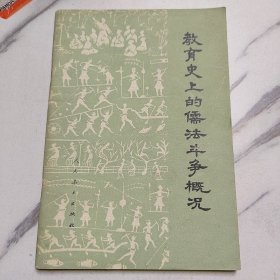 教育史上的儒法斗争概况
人民出版社